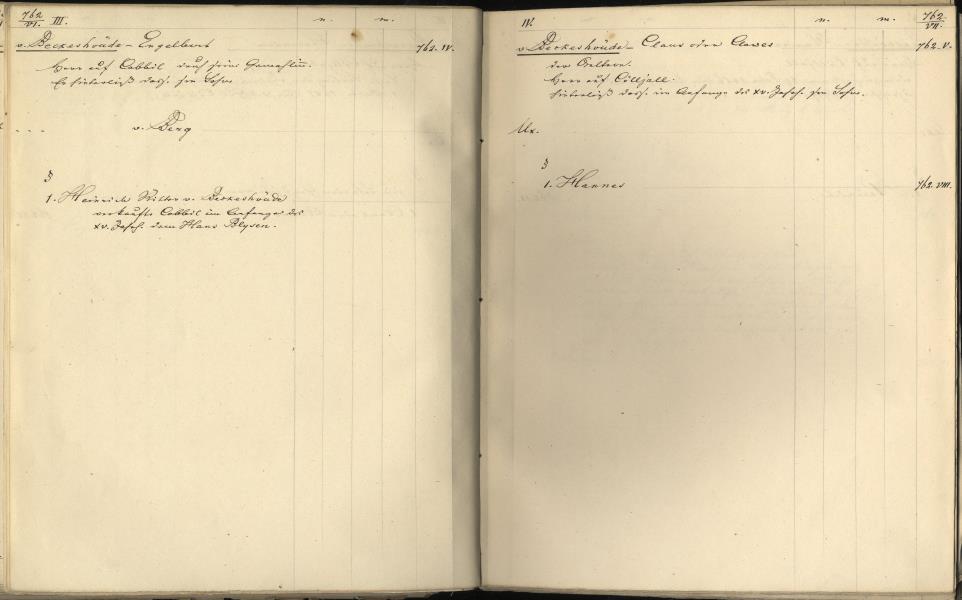 762/VI. III. n. m.
v. Beckeshöude - Engelbert 762. IV.
Herr auf Cabbil durch seine Gemahlin.
Er hinterließ dass. sein Sohn
v. Berg
§
1. Heinrich Ritter v. Beckeshöude
verkaufte Cabbil im Anfange des
xv. Jahrh. dem Hans Blysen.
IV. n. m. 762/VII.
v. Beckeshöude - Claus oder Clawes 762. V.
der Aeltere.
Herr auf Cölljall.
hinterließ dass. im Anfange des xv. Jahrh. sein Sohn.
Ux.
§
1. Hannes 762. VIII.